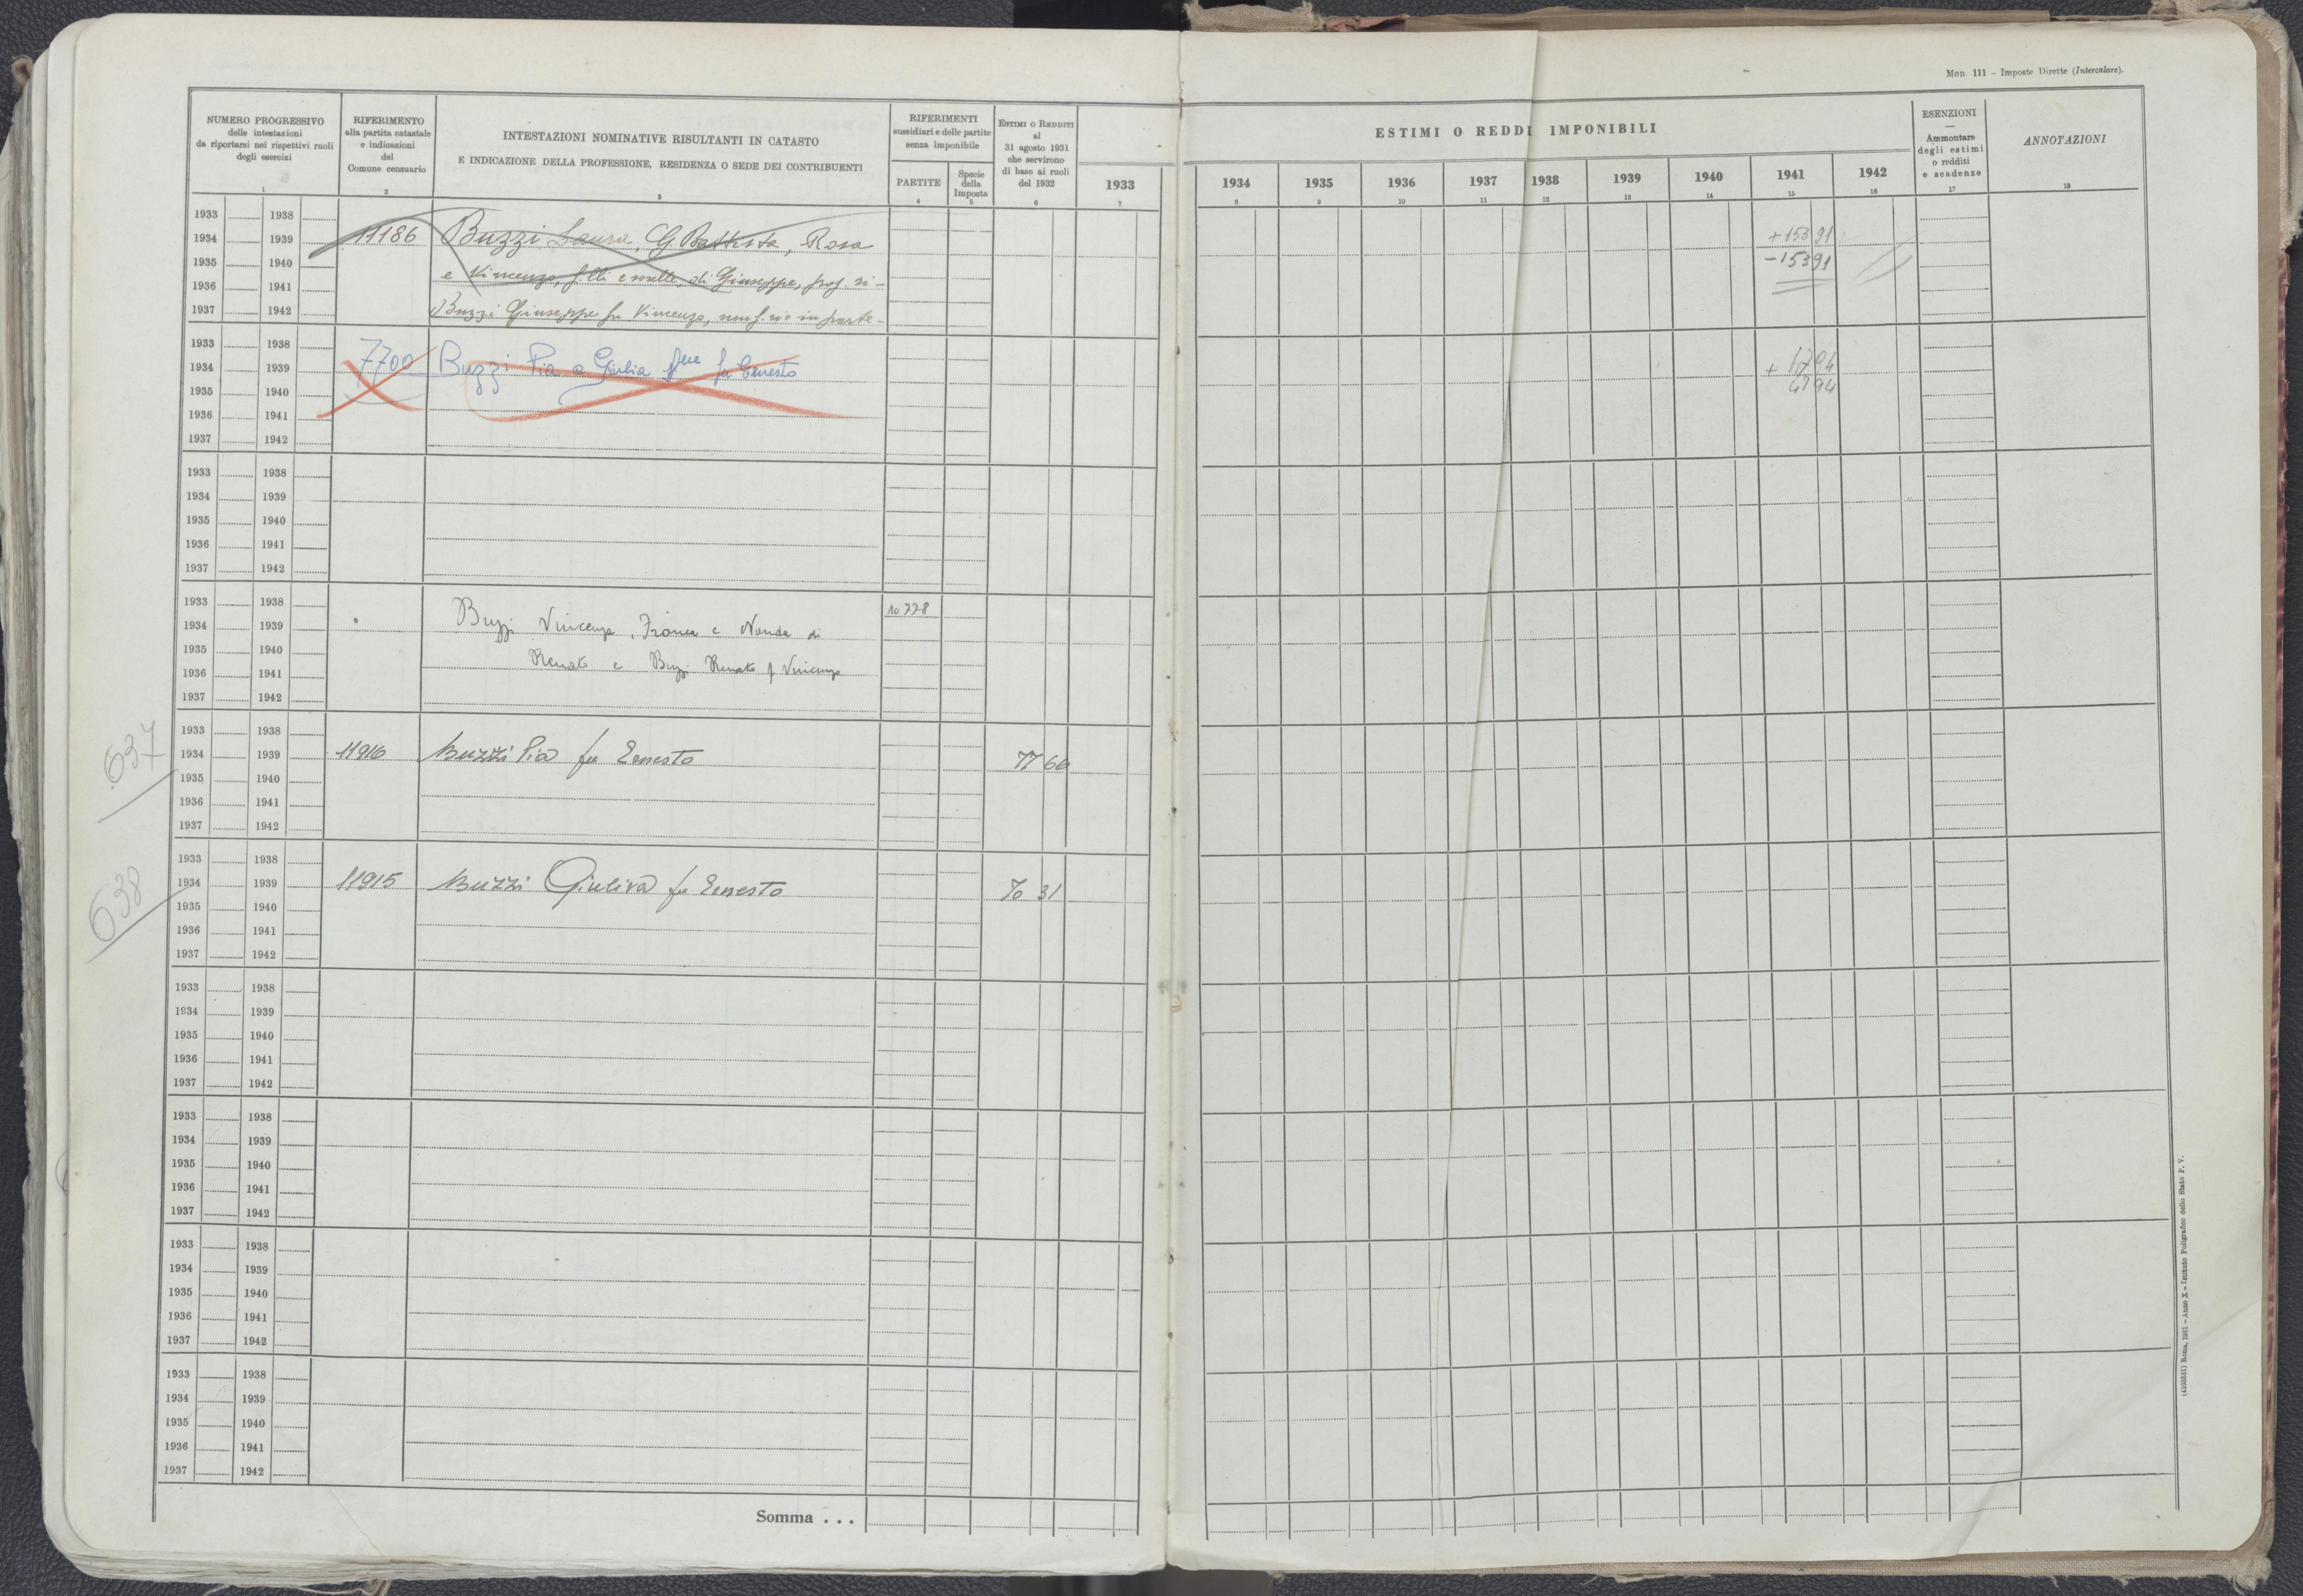 MOD. 111 – Imposte Dirette (Intercalare).
NUMERO PROGRESSIVO
delle intestazioni
da riportarsi nei rispettivi ruoli
degli esercizi
1
RIFERIMENTO
alla partita catastale
e indicazioni
del
Comune censuario
2
INTESTAZIONI NOMINATIVE RISULTANTI IN CATASTO
E INDICAZIONE DELLA PROFESSIONE, RESIDENZA O SEDE DEI CONTRIBUENTI
3
RIFERIMENTI
sussidiari e delle partite
senza imponibile
PARTITE
4
Specie
della
Imposta
5
ESTIMI O REDDITI
al
31 agosto 1931
che servirono
di base ai ruoli
del 1932
6
ESTIMI O REDDI IMPONIBILI
1933 1934 1935 1936 1937 1938 1939 1940 1941 1942
7 8 9 10 11 12 13 14 15 16
ESENZIONI
—
Ammontare
degli estimi
o redditi
e scadenze
17
ANNOTAZIONI
18
1933 1938
1934 1939 11186 Buzzi Laura, G. Battista, Rosa +153 91
1935 1940 e Vincenzo, f.lli e sorelle, di Giuseppe, prop. ri - −153 91
1936 1941
1937 1942 Buzzi Giuseppe fu Vincenzo, usuf. rio in parte -
1933 1938
1934 1939 7700 Buzzi Pia e Giulia fu Ernesto
1935 1940
1936 1941
1937 1942
1933 1938
1934 1939
1935 1940
1936 1941
1937 1942
1933 1938 10778
1934 1939 Buzzi Vincenzo, Franca e Nanda di
1935 1940 Renato e Buzzi Renato f Vincenzo
1936 1941
1937 1942
637
1933 1938
1934 1939 11916 Buzzi Pia fu Ernesto 77 66
1935 1940
1936 1941
1937 1942
638
1933 1938
1934 1939 11915 Buzzi Giulia fu Ernesto 70 31
1935 1940
1936 1941
1937 1942
1933 1938
1934 1939
1935 1940
1936 1941
1937 1942
1933 1938
1934 1939
1935 1940
1936 1941
1937 1942
1933 1938
1934 1939
1935 1940
1936 1941
1937 1942
1933 1938
1934 1939
1935 1940
1936 1941
1937 1942
Somma . . .
Roma, 1931 – Anno X – Istituto Poligrafico dello Stato P. V.